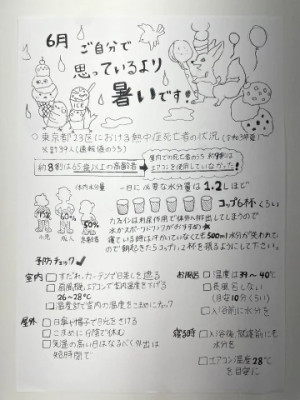 6月
ご自分で
思っているより
暑いです!
ICE
○東京都23区における熱中症死亡者の状況
約8割は65歳以上の高齢者
屋内での死亡者のうち約9割は
エアコンを使用していなかった!
体内水分量
一日に必要な水分量は1.2Lほど
コップ6杯くらい
60%
50%
高齢者
カフェインは利尿作用で体外へ排出してしまうので
水かスポーツドリンクがおすすめ
寝ている時は汗かいていなくても500ml水分が失われて
いるので朝起きたらコップ1~2杯を摂るようにして下さい。
予防チェック
室内
□すだれ、カーテンで日差しを遮る
□扇風機、エアコンで室内温度を下げる
26~28℃
□温度計で室内の温度をこまめにチェック
屋外
□日傘や帽子で日光をさける
□こまめに日陰で休む
□気温の高い日はなるべく外出は
短時間で
お風呂
□温度は39~40℃
□長風呂しない
(目安10分くらい)
□入浴前に水分を
寝る時
□入浴後、就寝前にも
水分を
□エアコン温度28℃
を目安に